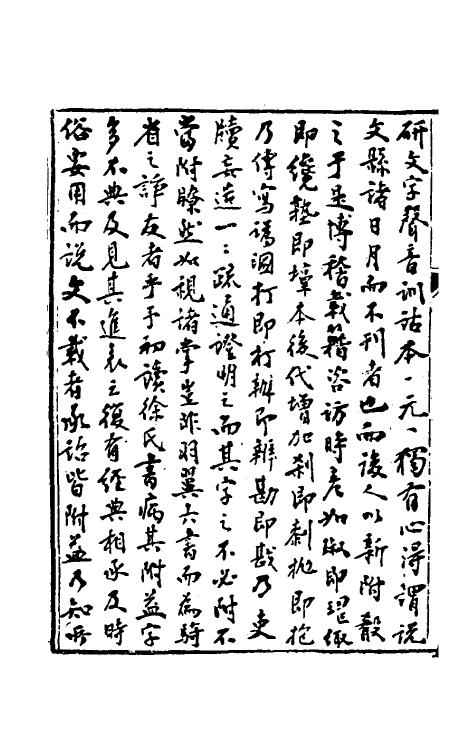 研文字聲音訓詁本一元一獨有心得謂說
文縣諸日月而不刊者也而後人以新附殽
之于是博稽載籍咨訪時彥如琡即璹
即繞塾即壔本後代增加刹即刺拋即抱
乃傳寫譌溷打即朾辦即辨勘即戡乃吏
牘妄造一二疏通證明之而其字之不必附不
當附瞭然如視諸掌豈非羽翼六書而為騎
省之諍友者乎予初讀徐氏書病其附益字
多不典及見其進表云復有經典相承及時
俗要用而說文不載者承詔皆附益乃知所